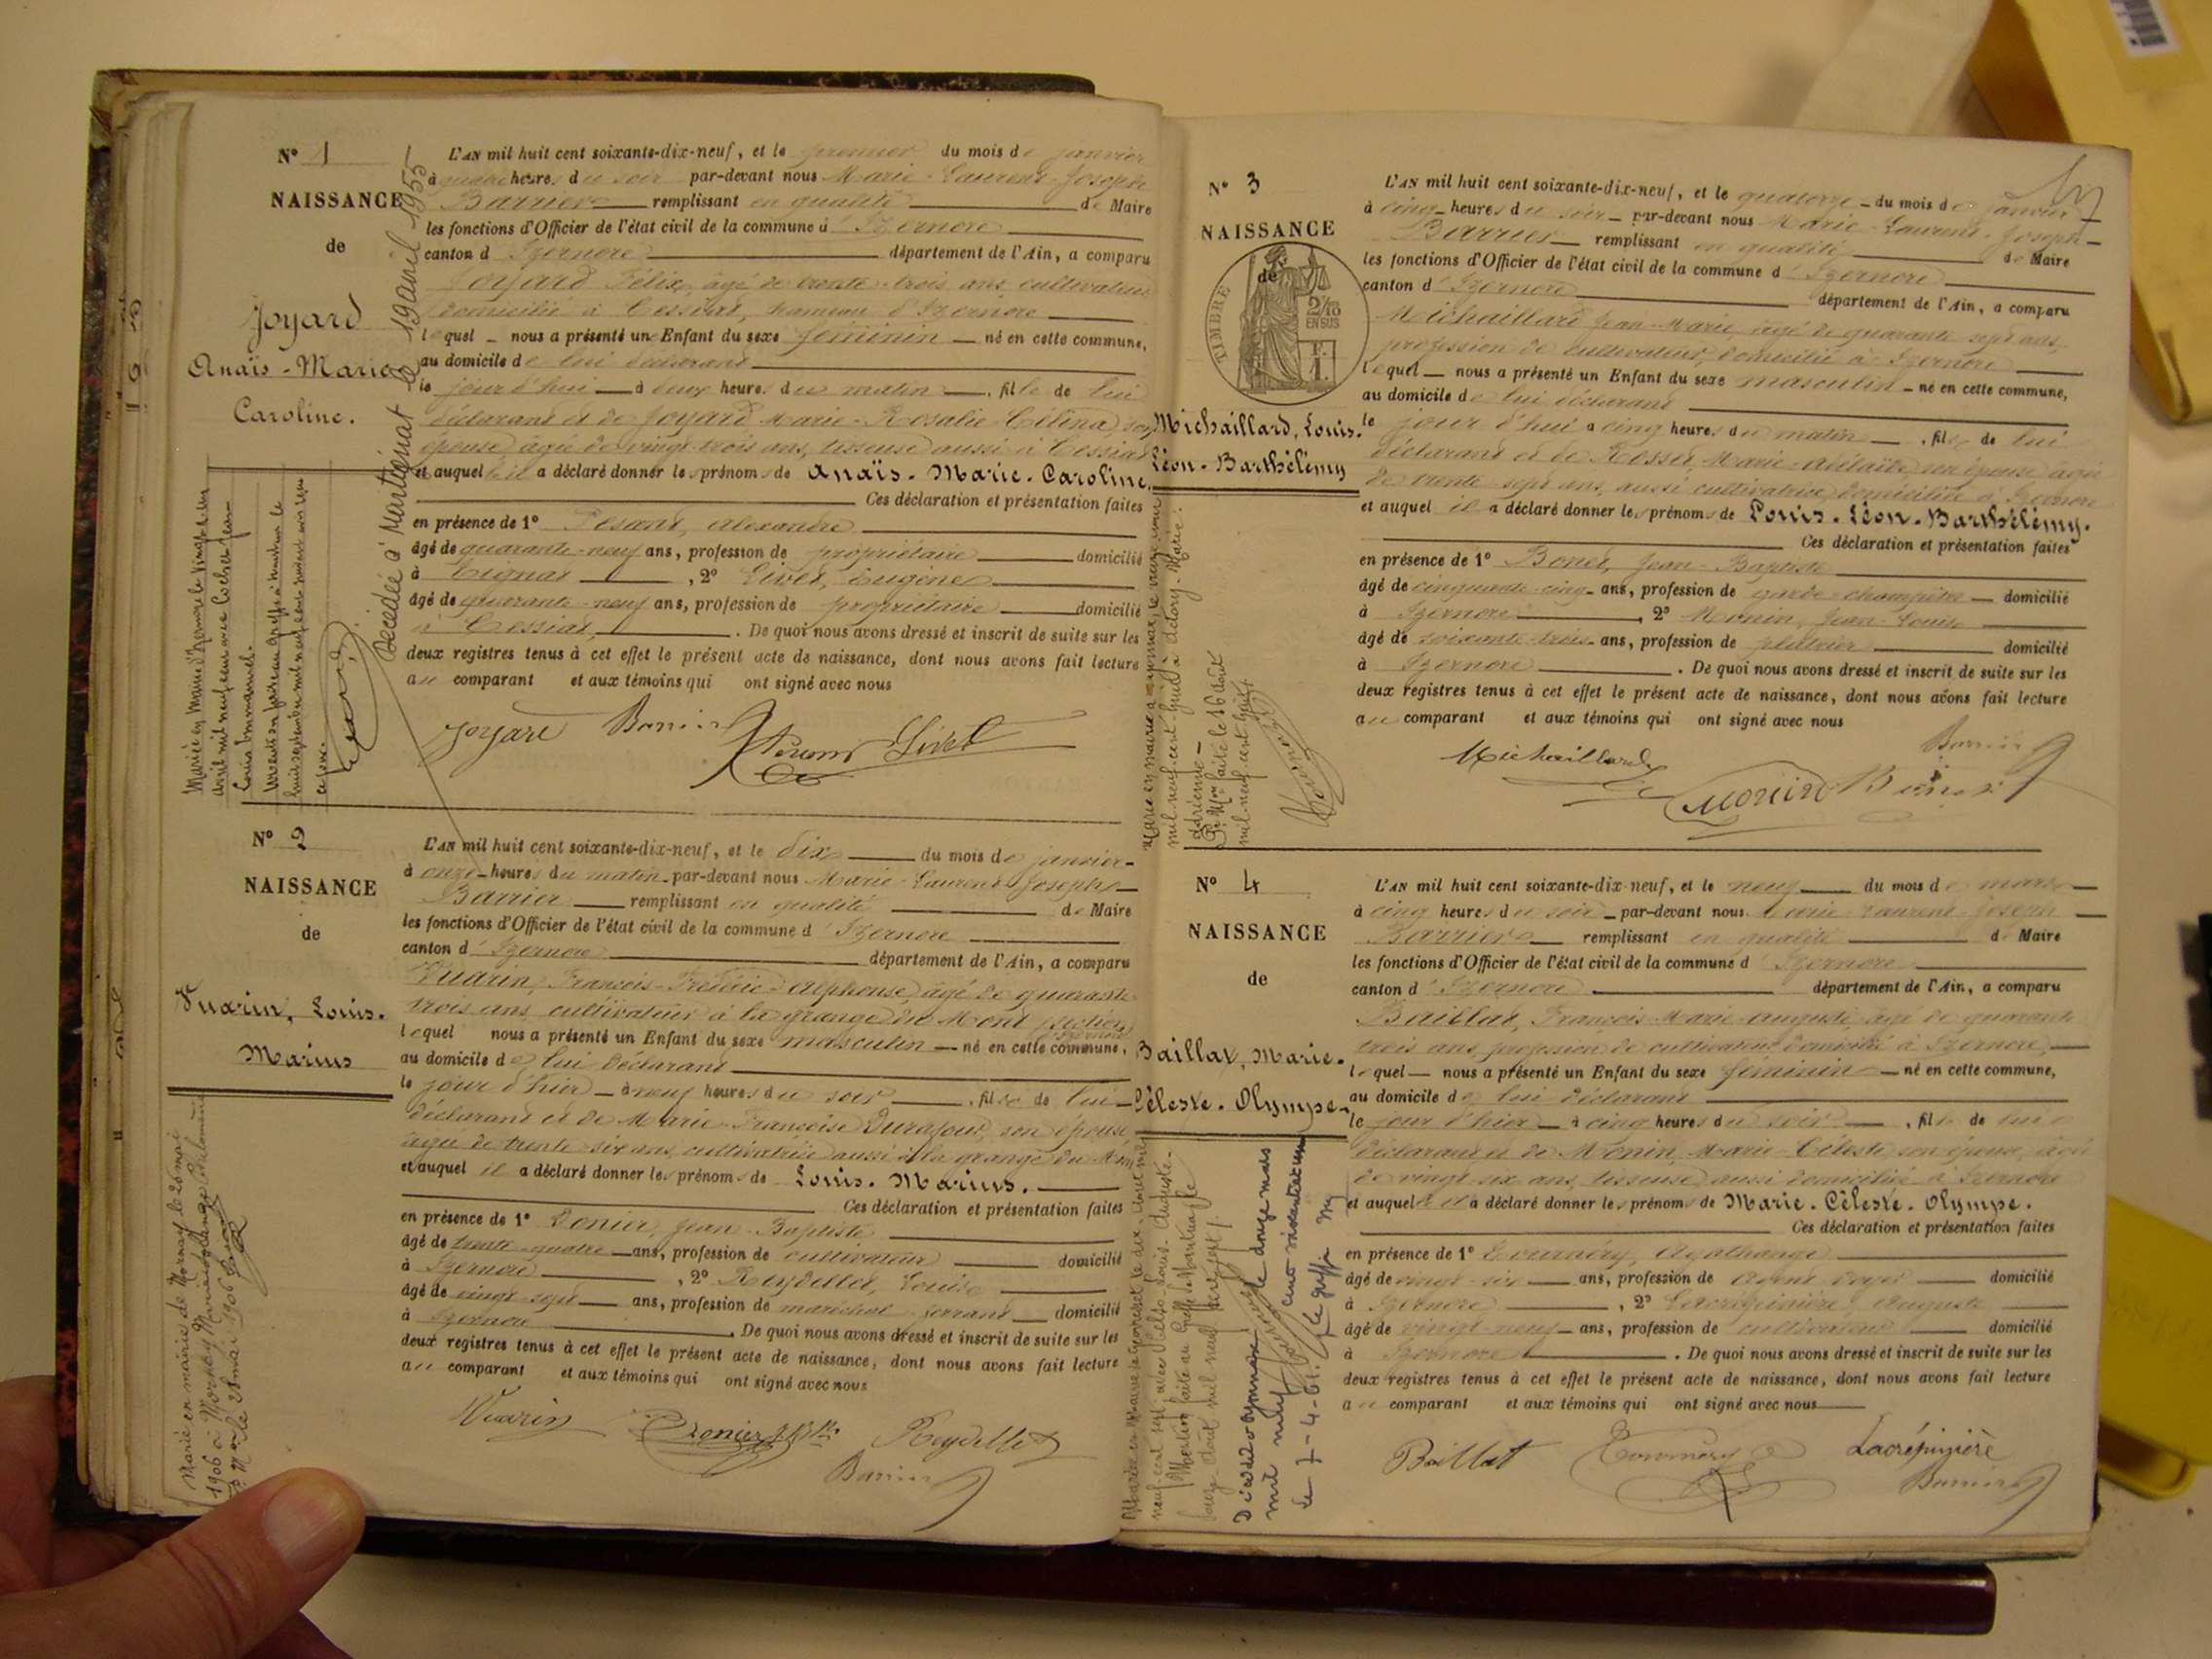 N° 1
NAISSANCE
de
Joyard
Anaïs-Marie
Caroline.
L'AN mil huit cent soixante-dix-neuf, et le premier du mois de janvier
à quatre heures du soir par-devant nous Marie-Laurent-Joseph
Barrier remplissant en qualité de Maire
les fonctions d'Officier de l'état civil de la commune d'Izernore
canton d'Izernore département de l'Ain, a comparu
Joyard Félix, âgé de trente-trois ans, cultivateur
domicilié à Cessiat, hameau d'Izernore
lequel nous a présenté un Enfant du sexe féminin né en cette commune,
au domicile de lui déclarant
le jour d'hui à deux heures du matin, fille de lui
déclarant et de Joyard Marie-Rosalie-Célina, son
épouse, âgée de vingt-trois ans, tisseuse aussi à Cessiat
et auquel il a déclaré donner les prénoms de Anaïs-Marie-Caroline.
Ces déclaration et présentation faites
en présence de 1° Alexandre
âgé de quarante-neuf ans, profession de propriétaire domicilié
à , 2° Livet, Eugène
âgé de quarante-neuf ans, profession de propriétaire domicilié
à Cessiat. De quoi nous avons dressé et inscrit de suite sur les
deux registres tenus à cet effet le présent acte de naissance, dont nous avons fait lecture
au comparant et aux témoins qui ont signé avec nous
Joyard Barrier Livet
Décédée à Martignat le 19 avril 1955
N° 2
NAISSANCE
de
Vuarin, Louis.
Marius
L'AN mil huit cent soixante-dix-neuf, et le dix du mois de janvier
à onze heures du matin par-devant nous Marie-Laurent-Joseph
Barrier remplissant en qualité de Maire
les fonctions d'Officier de l'état civil de la commune d'Izernore
canton d'Izernore département de l'Ain, a comparu
Vuarin, François-Frédéric-Alphonse, âgé de quarante
trois ans, cultivateur à la grange du Mont (section
lequel nous a présenté un Enfant du sexe masculin né en cette commune,
au domicile de lui déclarant
le jour d'hier à neuf heures du soir, fils de lui
déclarant et de Marie-Françoise Durafour, son épouse
âgée de trente-six ans, cultivatrice aussi à la grange du Mont
et auquel il a déclaré donner les prénoms de Louis. Marius.
Ces déclaration et présentation faites
en présence de 1° Jean-Baptiste
âgé de trente-quatre ans, profession de cultivateur domicilié
à Izernore, 2° Reydellet, Louis
âgé de vingt-sept ans, profession de maréchal ferrant domicilié
à Izernore. De quoi nous avons dressé et inscrit de suite sur les
deux registres tenus à cet effet le présent acte de naissance, dont nous avons fait lecture
au comparant et aux témoins qui ont signé avec nous
Vuarin Reydellet
Barrier
Marié en mairie de Mornay le 26 mai
1906 à Mornay
le 28 mai 1906
N° 3
NAISSANCE
de
TIMBRE
2/10
EN SUS
Michaillard, Louis.
Léon-Barthélémy
L'AN mil huit cent soixante-dix-neuf, et le quatorze du mois de janvier
à cinq heures du soir par-devant nous Marie-Laurent-Joseph
Barrier remplissant en qualité de Maire
les fonctions d'Officier de l'état civil de la commune d'Izernore
canton d'Izernore département de l'Ain, a comparu
Michaillard Jean-Marie, âgé de quarante-sept ans,
profession de cultivateur, domicilié à Izernore
lequel nous a présenté un Enfant du sexe masculin né en cette commune,
au domicile de lui déclarant
le jour d'hui à cinq heures du matin, fils de lui
déclarant et de Rosset, Marie-Adélaïde, son épouse âgée
de trente-sept ans, aussi cultivatrice domiciliée à Izernore
et auquel il a déclaré donner les prénoms de Louis. Léon. Barthélémy.
Ces déclaration et présentation faites
en présence de 1° Bonet, Jean-Baptiste
âgé de cinquante-cinq ans, profession de garde-champêtre domicilié
à Izernore, 2° Monin, Jean-Louis
âgé de soixante-trois ans, profession de plâtrier domicilié
à Izernore. De quoi nous avons dressé et inscrit de suite sur les
deux registres tenus à cet effet le présent acte de naissance, dont nous avons fait lecture
au comparant et aux témoins qui ont signé avec nous
Michaillard Barrier
Monin
N° 4
NAISSANCE
de
Baillat, Marie.
Céleste. Olympe
L'AN mil huit cent soixante-dix-neuf, et le neuf du mois de mars
à cinq heures du soir par-devant nous Marie-Laurent-Joseph
Barrier remplissant en qualité de Maire
les fonctions d'Officier de l'état civil de la commune d'Izernore
canton d'Izernore département de l'Ain, a comparu
Baillat, François-Marie-Auguste, âgé de quarante
trois ans, profession de cultivateur domicilié à Izernore,
lequel nous a présenté un Enfant du sexe féminin né en cette commune,
au domicile de lui déclarant
le jour d'hier à cinq heures du soir, fille de lui
déclarant et de Monin, Marie-Céleste, son épouse, âgée
de vingt-six ans, tisseuse aussi domiciliée à Izernore
et auquel il a déclaré donner les prénoms de Marie. Céleste. Olympe.
Ces déclaration et présentation faites
en présence de 1° Tournéry, Agathange
âgé de vingt-six ans, profession de domicilié
à Izernore, 2° Lacrépinière, Auguste
âgé de vingt-neuf ans, profession de cultivateur domicilié
à Izernore. De quoi nous avons dressé et inscrit de suite sur les
deux registres tenus à cet effet le présent acte de naissance, dont nous avons fait lecture
au comparant et aux témoins qui ont signé avec nous
Baillat Tournéry Lacrépinière
Barrier